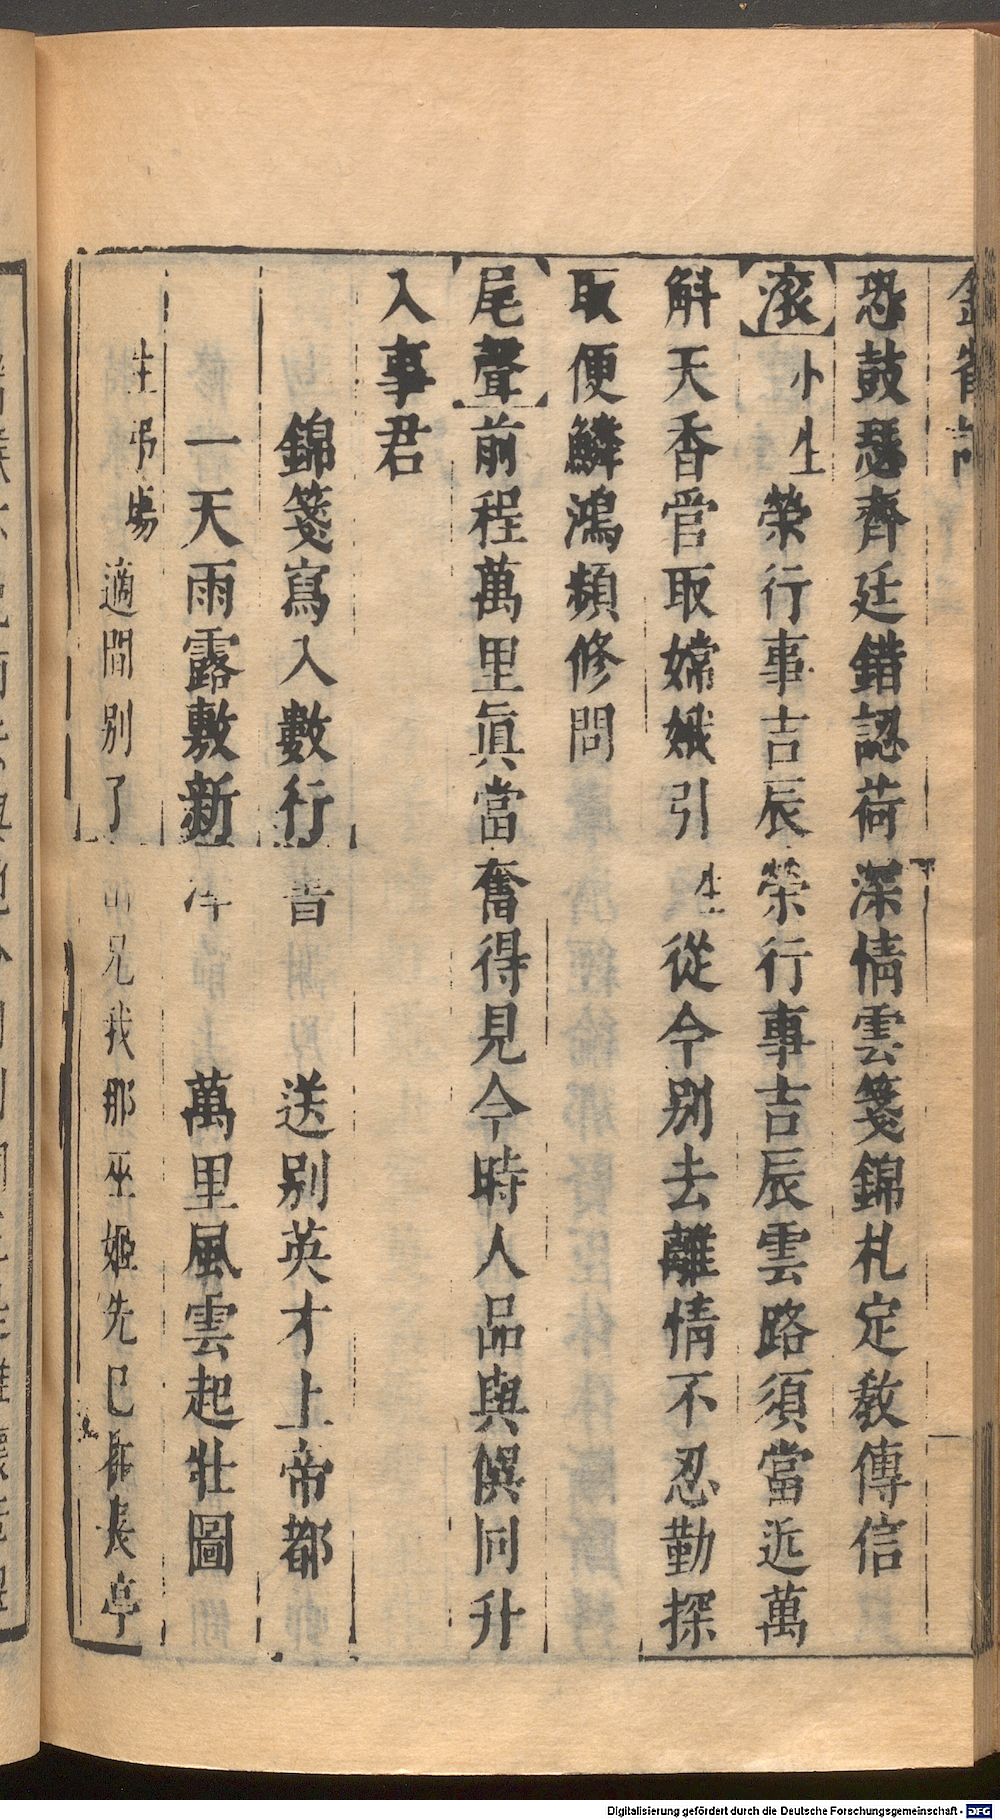 恐鼓瑟齊廷錯認荷深情雲箋錦札定教傳信
【滾】小生榮行事吉辰榮行事吉辰雲路須當近萬
斛天香管取嫦娥引生從今別去離情不忍勤探
取便鱗鴻頻修問
【尾聲】前程萬里眞當奮得見今時人品與俁同升
入事君
錦箋寫入數行書 送別英才上帝都
一天雨露敷新澤 萬里風雲起壯圖
生弔場適間別了 兄我那巫姬先已在長亭
Digitalisierung gefördert durch die Deutsche Forschungsgemeinschaft - DFG